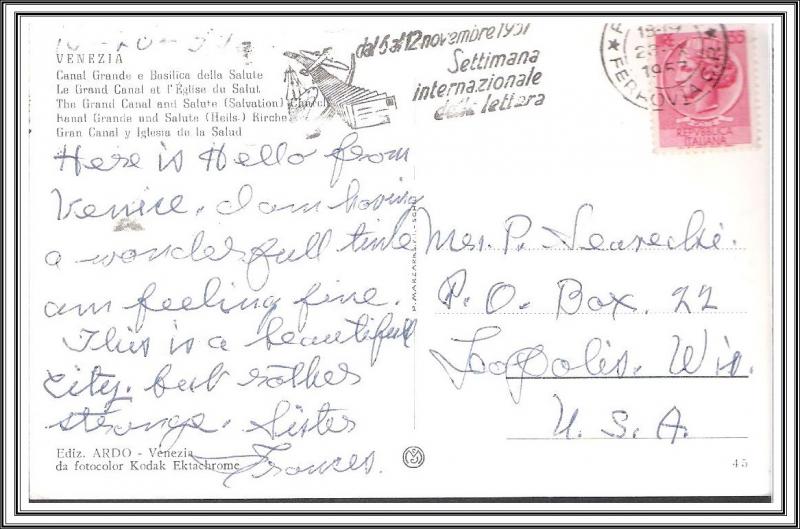 VENEZIA
Canal Grande e Basilica della Salute
Le Grand Canal et l'Église du Salut
The Grand Canal and Salute (Salvation) Church
Kanal Grande und Salute (Heils-) Kirche
Gran Canal y Iglesia de la Salud
dal 6 al 12 novembre 1957
Settimana
internazionale
della lettera
1957
FERROVIA
REPVBBLICA
ITALIANA
Here is Hello from
Venice. I am having
a wonderfull time
am feeling fine.
This is a beautifull
city. but rather
strange. Sister
Frances.
Mrs. P.
P.O. Box. 22
Lopolis. Wis.
U.S.A.
Ediz. ARDO - Venezia
da fotocolor Kodak Ektachrome
45